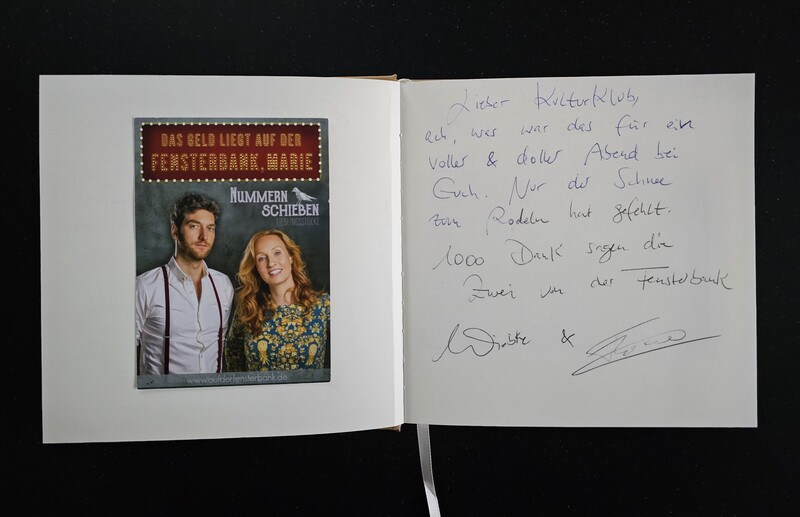 DAS GELD LIEGT AUF DER
FENSTERBANK, MARIE
NUMMERN
SCHIEBEN
www.aufderfensterbank.de
Lieber KulturKlub,
ach, was war das für ein
voller & doller Abend bei
Euch. Nur der Schnee
zum Rodeln hat gefehlt.
1000 Dank sagen die
Zwei von der Fensterbank
Wiebke &